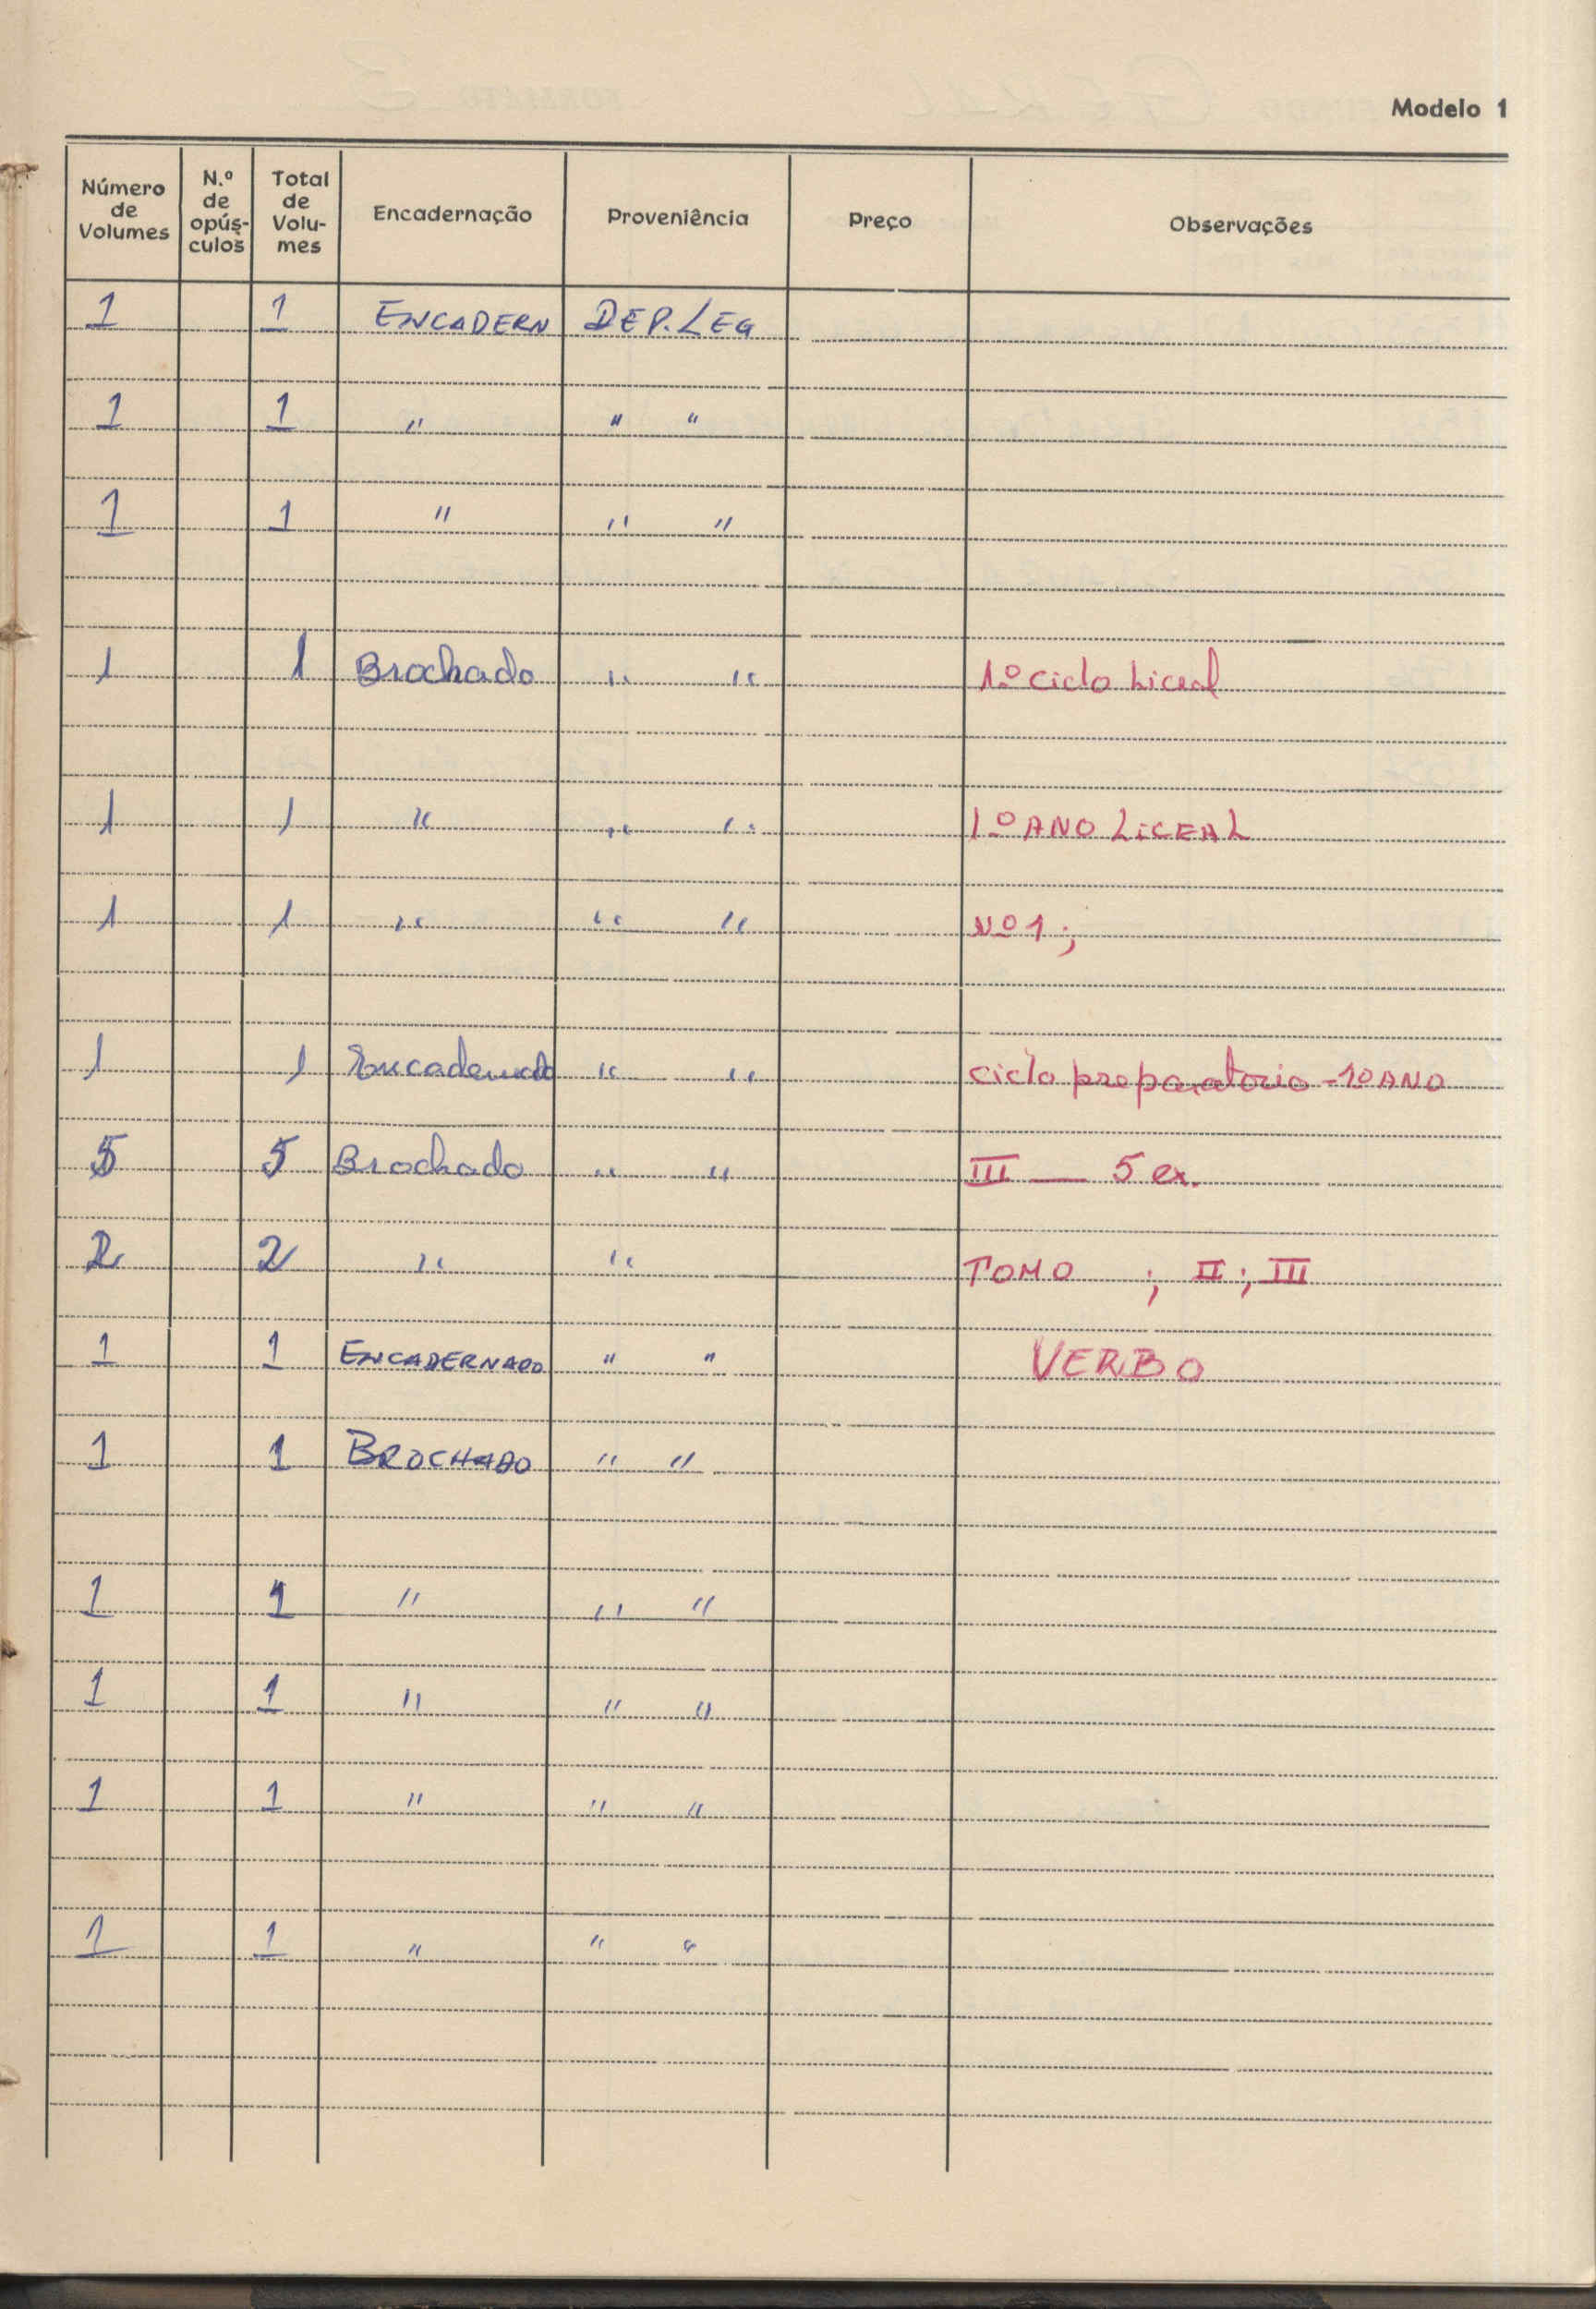 Modelo 1
Número de Volumes N.º de opús-culos Total de Volu-mes Encadernação Proveniência Preço Observações
1 1 ENCADERN DEP. LEG
1 1 " " "
1 1 " " "
1 1 Brochado " " 1.º ciclo liceal
1 1 " " " 1.º ANO LiCEAL
1 1 " " " Nº 1 ;
1 1 Encadernado " " ciclo preparatorio - 1º ANO
5 5 Brochado " " III — 5 ex.
2 2 " " TOMO ; II ; III
1 1 ENCADERNADO " " VERBO
1 1 BROCHADO " "
1 1 " " "
1 1 " " "
1 1 " " "
1 1 " " "